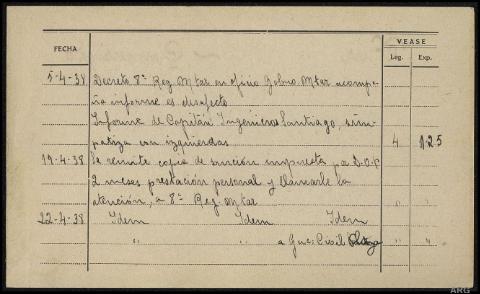 FECHA
VEASE
Leg.
Exp.
5-4-38 Decreto 8ª Reg. Mtar en oficio Gobno. Mtar acompa-
ña informe es desafecto
Informe de Capitán Ingenieros Santiago, sim-
patiza con izquierdas 4 125
19-4-38 Se remite copia de sanción impuesta pa D.O.P
2 meses prestación personal y llamarle la
atención, a 8ª Reg. Mtar
22-4-38 Idem Idem Idem " "
" " a Guar. Civil " "
ARG